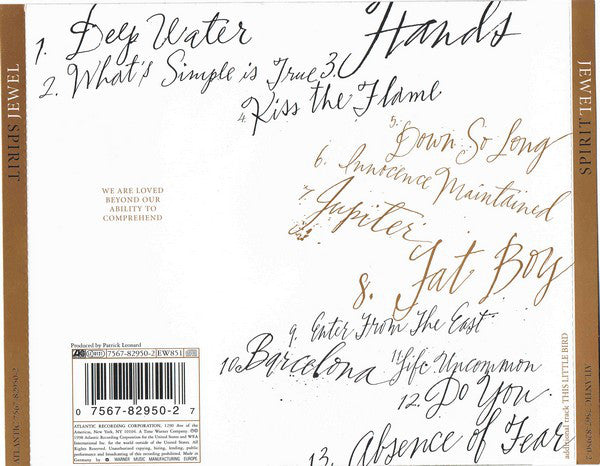 JEWEL SPIRIT
ATLANTIC 7567-82950-2
1. Deep Water
2. What's Simple is True
3. Hands
4. Kiss the Flame
5. Down So Long
6. Innocence Maintained
7. Jupiter
8. Fat Boy
9. Enter From The East
10. Barcelona
11. Life Uncommon
12. Do You
13. Absence of Fear
additional track THIS LITTLE BIRD
WE ARE LOVED
BEYOND OUR
ABILITY TO
COMPREHEND
Produced by Patrick Leonard
7567-82950-2 EW851
0 7567-82950-2 7
ATLANTIC RECORDING CORPORATION, 1290 Ave of the
Americas, New York, NY 10104. A Time Warner Company.
1998 Atlantic Recording Corporation for the United States and WEA
International Inc. for the world outside of the United States. All
Rights Reserved. Unauthorized copying, hiring, lending, public
performance and broadcasting of this recording prohibited. Made in
Germany by WARNER MUSIC MANUFACTURING EUROPE.
JEWEL SPIRIT
ATLANTIC 7567-82950-2